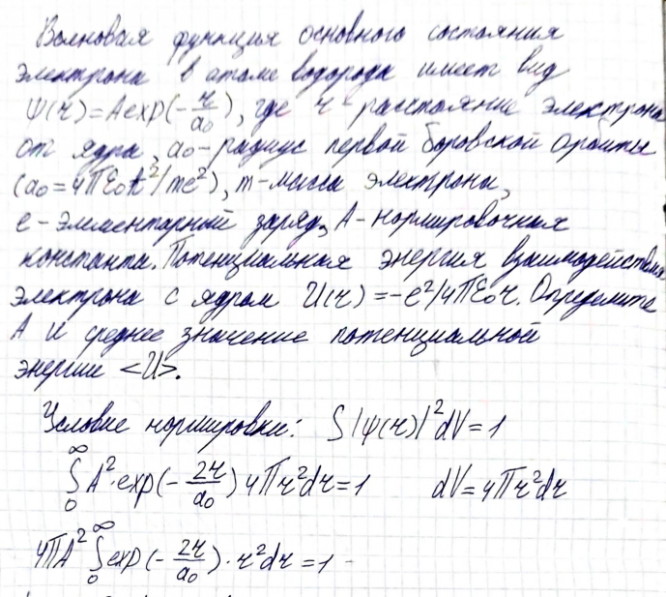 Волновая функция основного состояния
электрона в атоме водорода имеет вид
ψ(r)=Aexp(-r/a₀), где r - расстояние электрона
от ядра, a₀-радиус первой боровской орбиты
(a₀=4πε₀ħ²/me²), m-масса электрона,
e-элементарный заряд, A-нормировочная
константа. Потенциальная энергия взаимодействия
электрона с ядром U(r)=-e²/4πε₀r. Определите
A и среднее значение потенциальной
энергии <U>.
Условие нормировки: ∫|ψ(r)|²dV=1
∫₀^∞ A²·exp(-2r/a₀)4πr²dr=1 dV=4πr²dr
4πA²∫₀^∞ exp(-2r/a₀)·r²dr=1